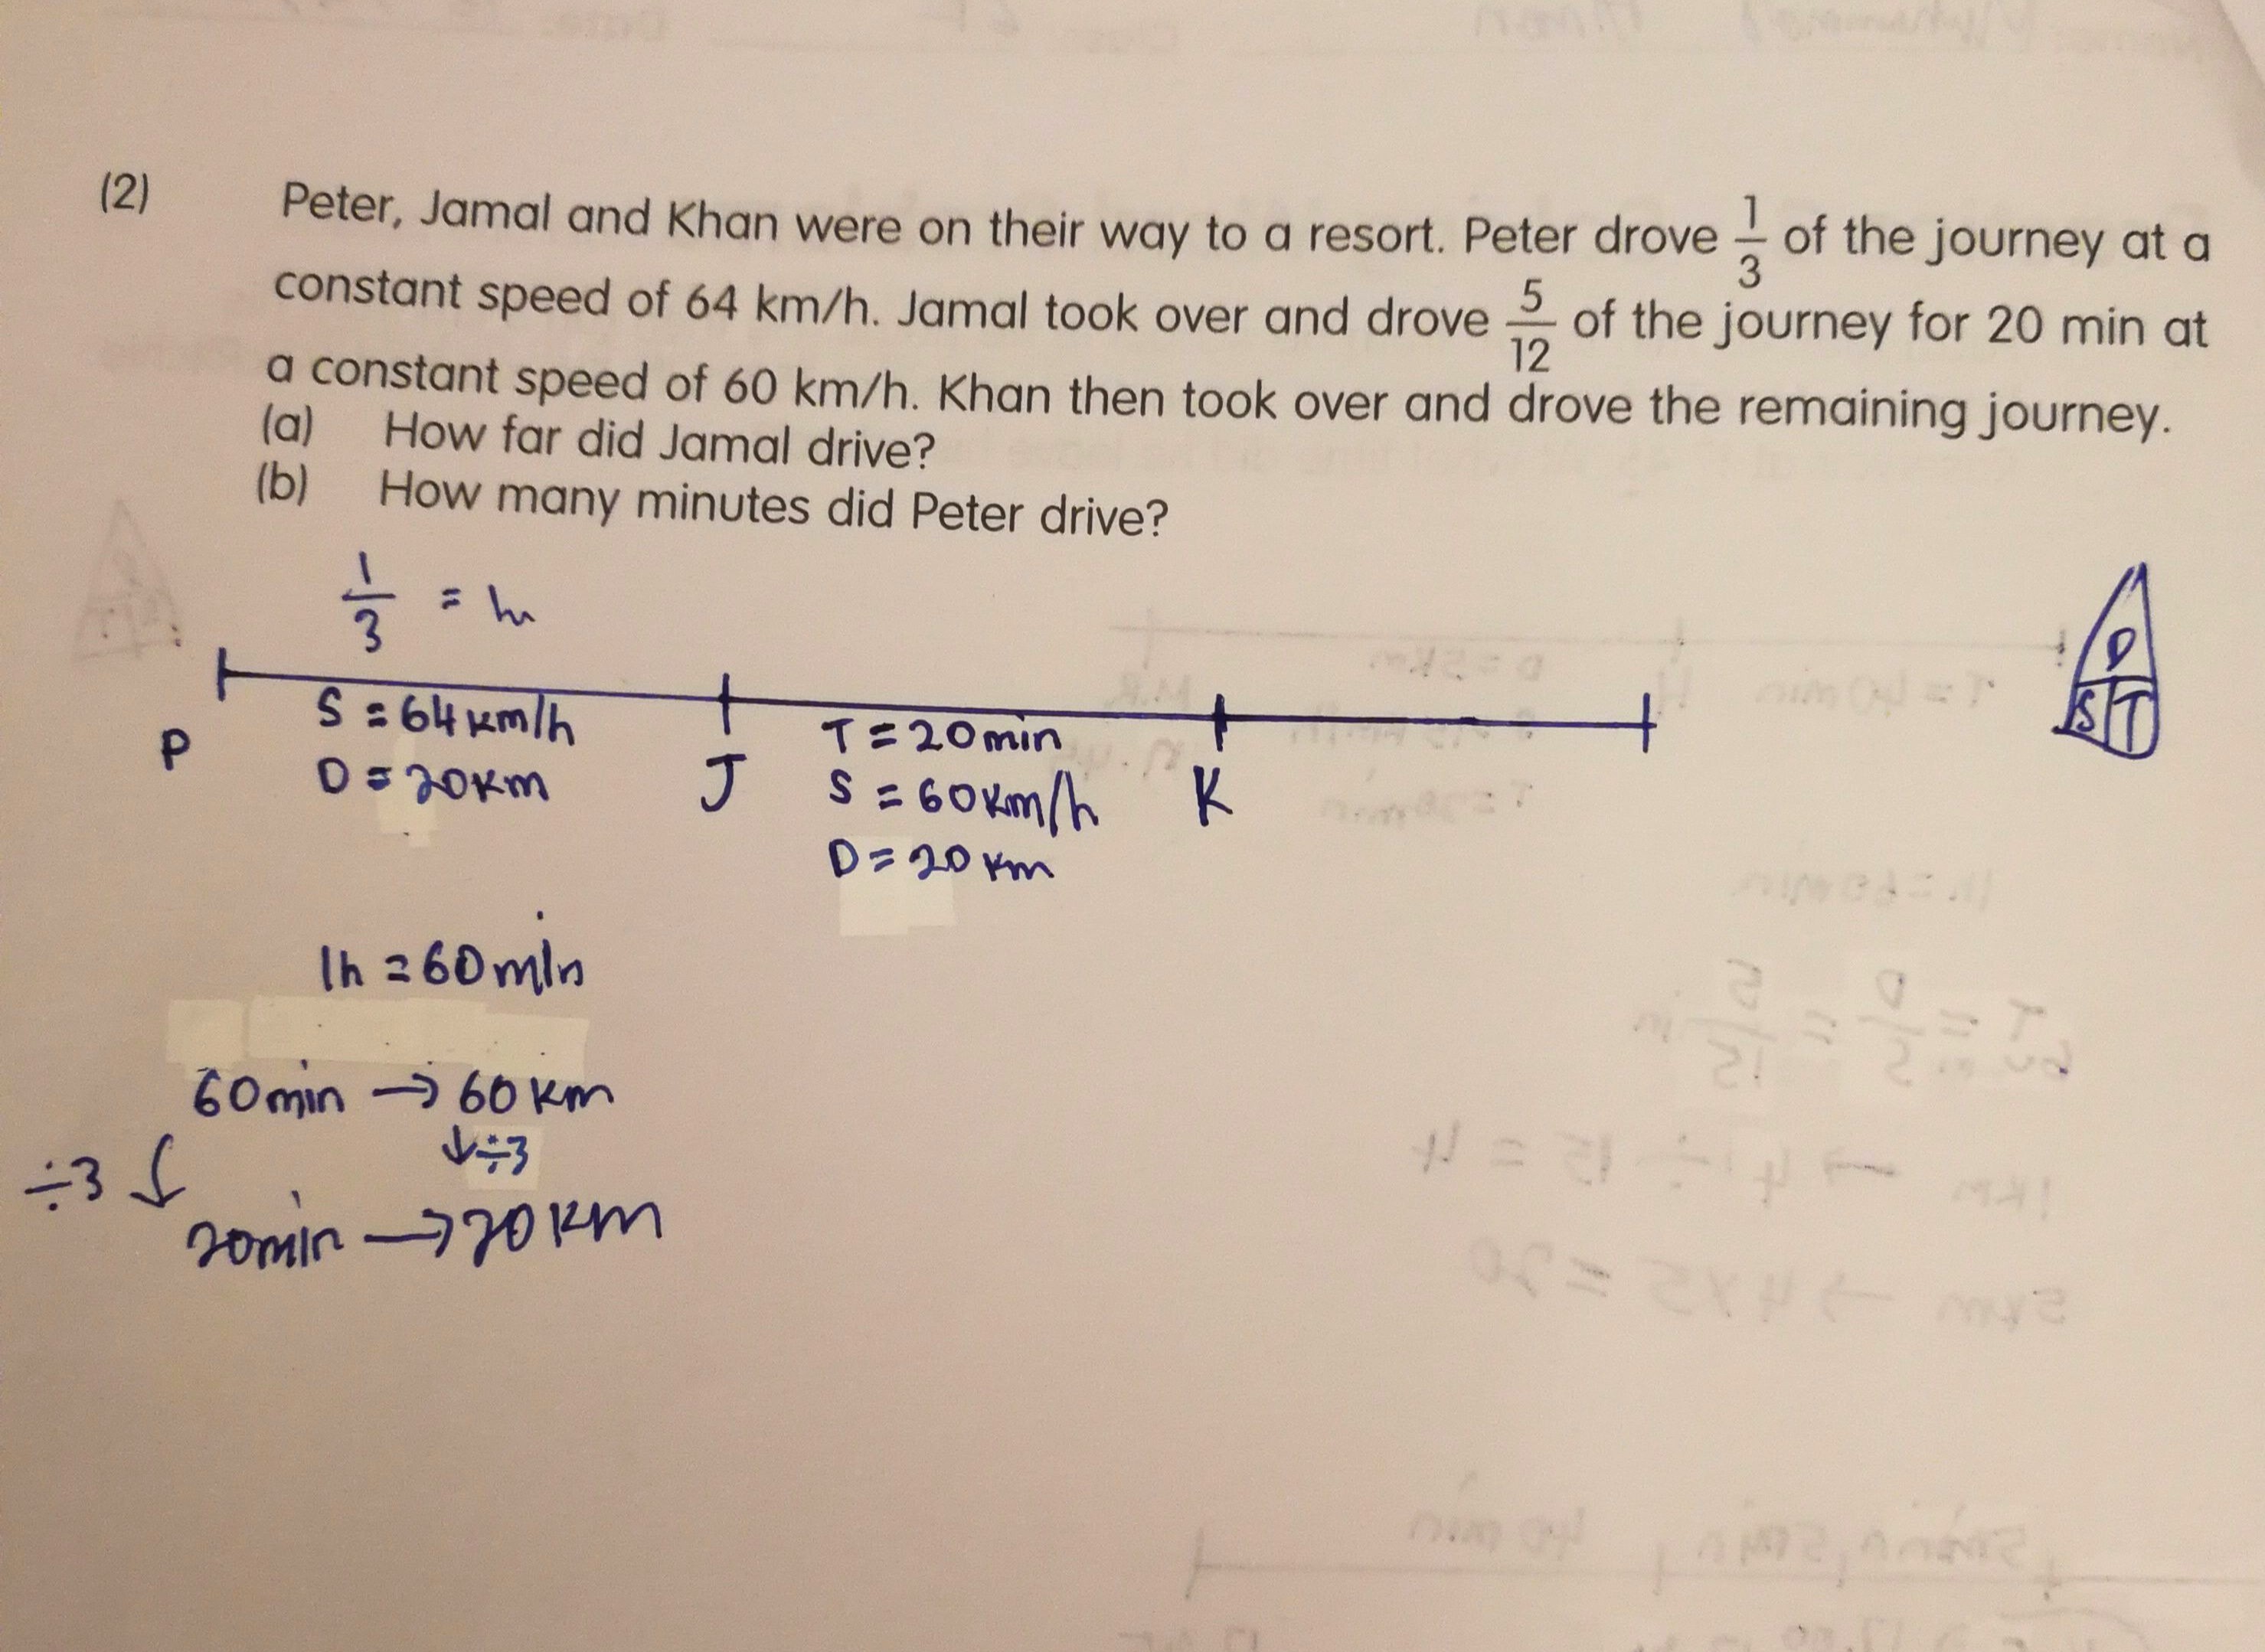 (2) Peter, Jamal and Khan were on their way to a resort. Peter drove 1/3 of the journey at a
constant speed of 64 km/h. Jamal took over and drove 5/12 of the journey for 20 min at
a constant speed of 60 km/h. Khan then took over and drove the remaining journey.
(a) How far did Jamal drive?
(b) How many minutes did Peter drive?
1/3 =
D
S T
P S = 64 km/h
D = 20km
J T = 20min
S = 60km/h
D = 20 km
K
1h = 60min
60min → 60 km
÷3 ↓ ↓÷3
20min → 20 km